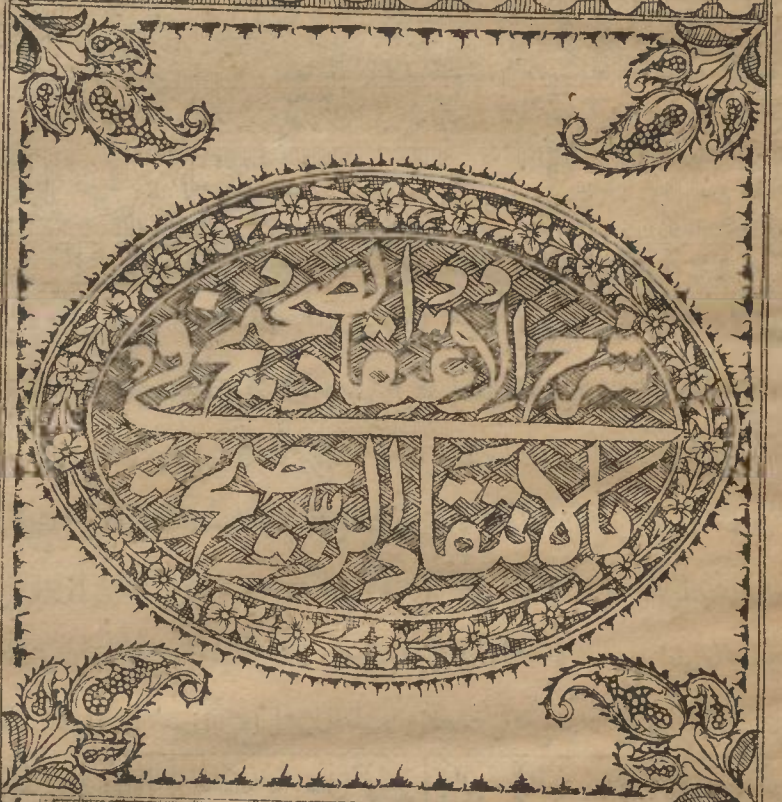 شرح الاعتقاد الصحيح في
بالانتقاد الرجيح